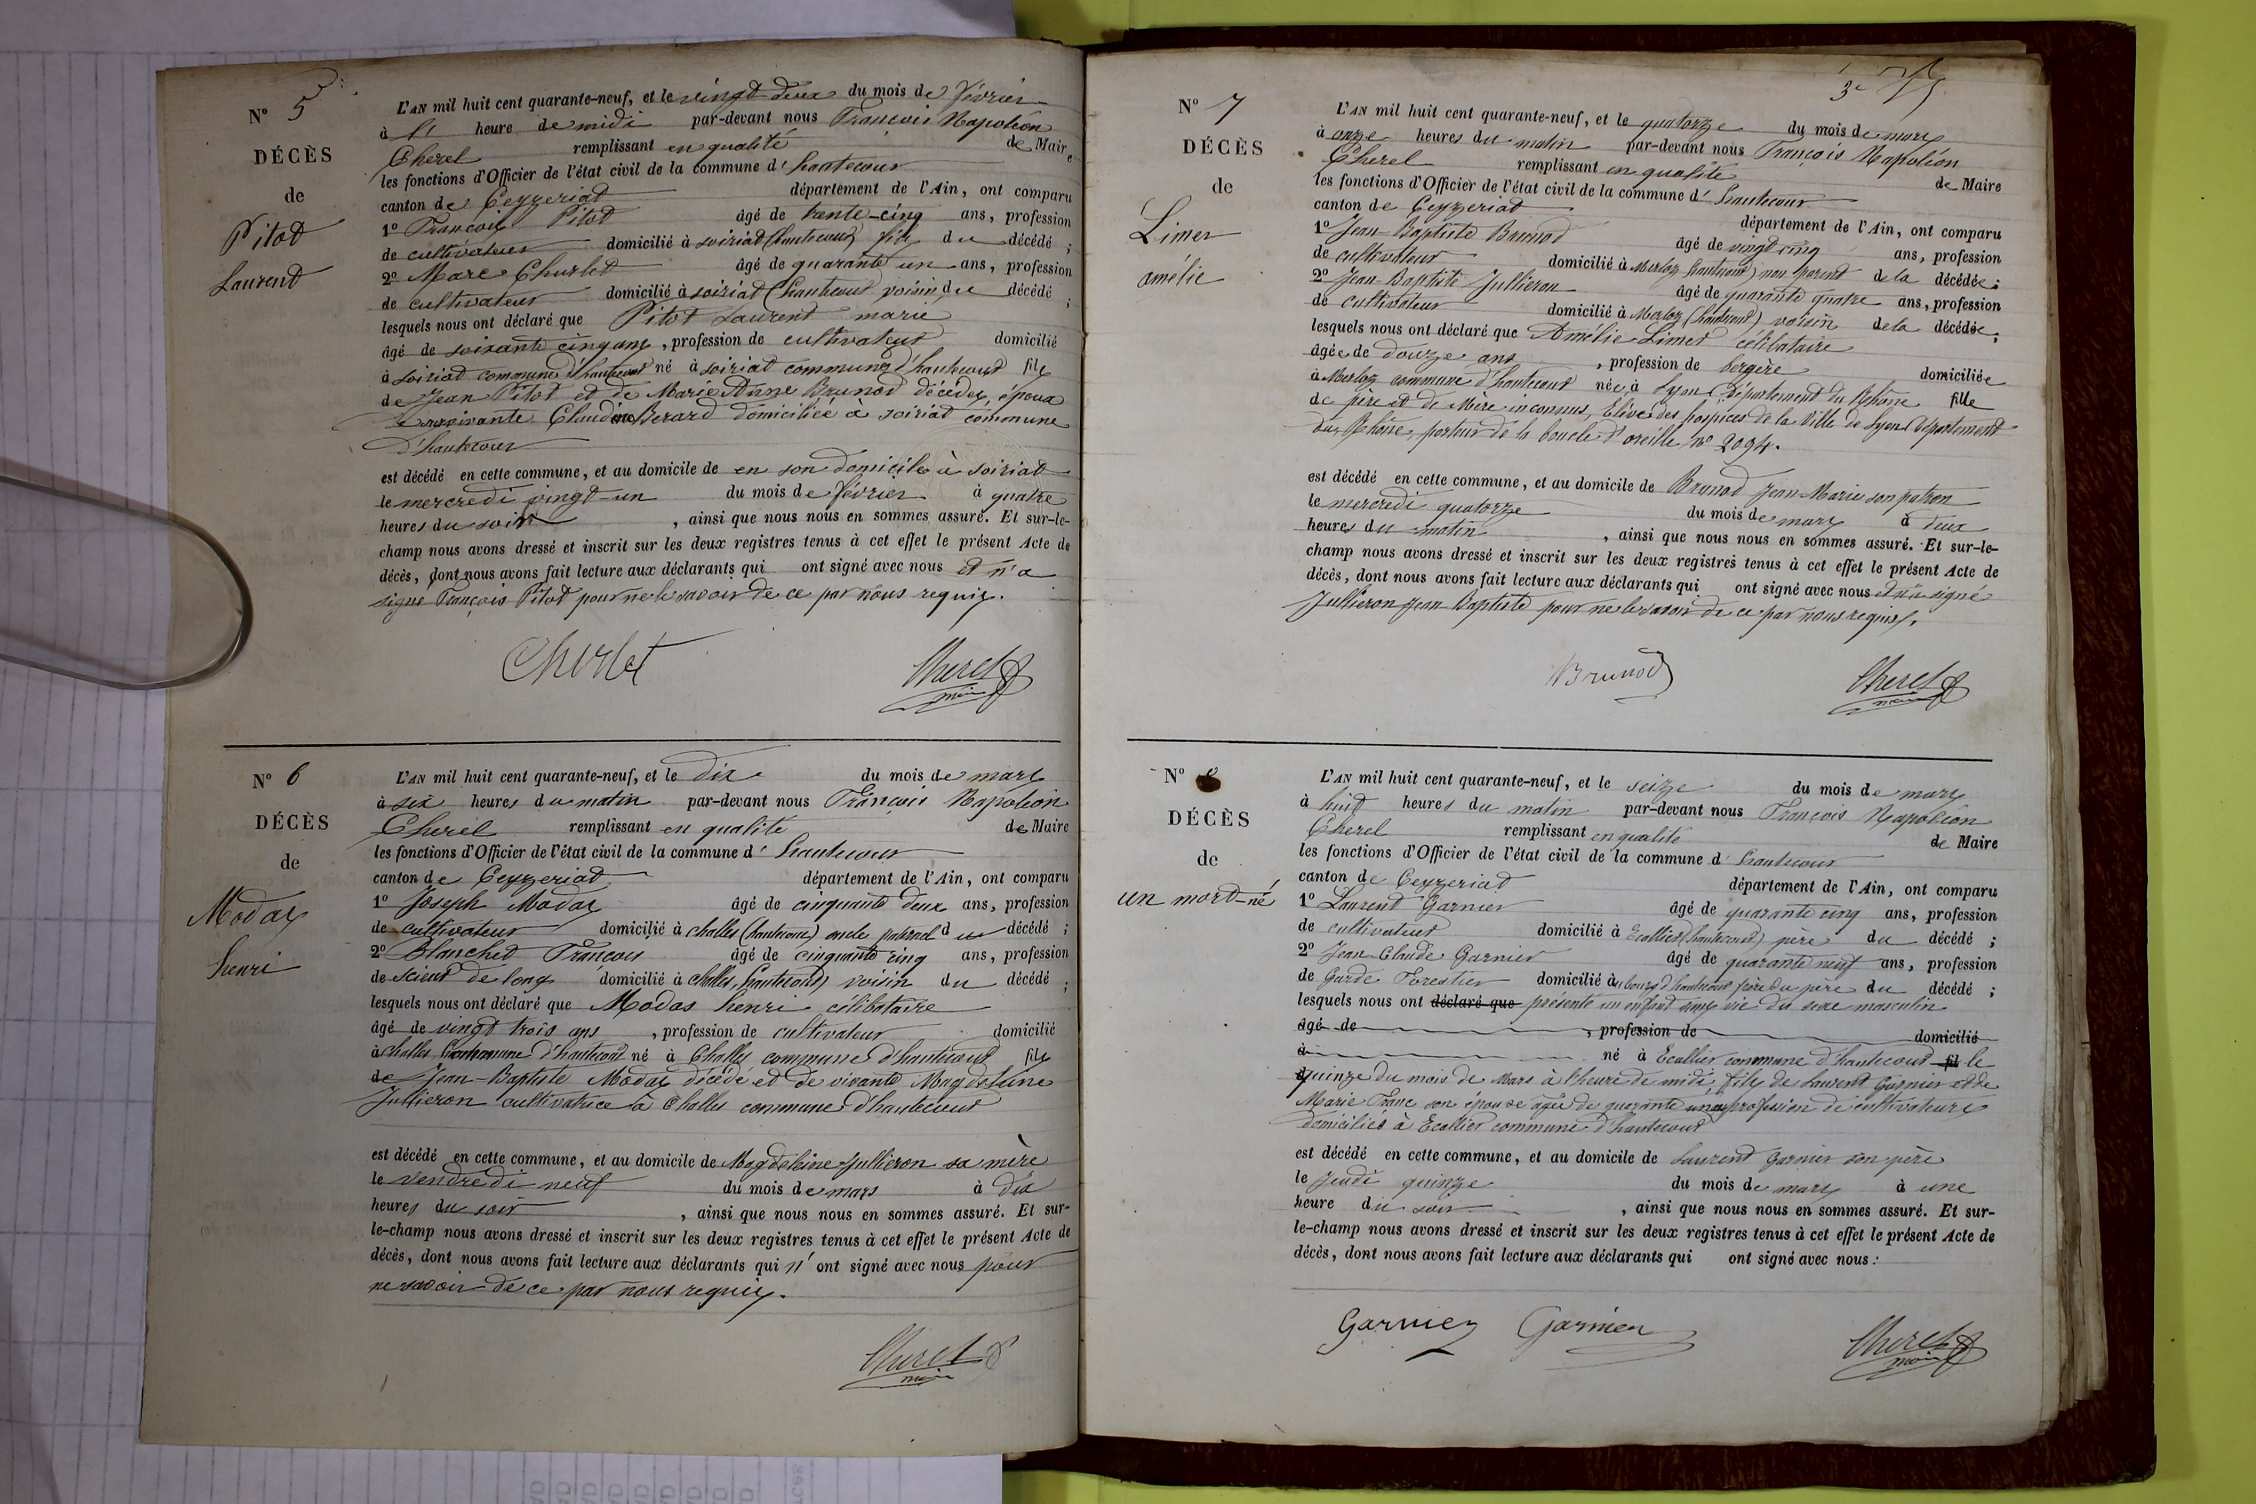 N° 5
DÉCÈS
de
Pitot
Laurent
L'AN mil huit cent quarante-neuf, et le vingt deux du mois de février
à l' heure de midi par-devant nous François Napoléon
Cherel remplissant en qualité de Maire
les fonctions d'Officier de l'état civil de la commune d'hautecour
canton de Ceyzeriat département de l'Ain, ont comparu
1° François Pitot âgé de trente-cinq ans, profession
de cultivateur domicilié à soiriat (hautecour) fils du décédé ;
2° Marc Churlet âgé de quarante un ans, profession
de cultivateur domicilié à soiriat (hautecour voisin du décédé ;
lesquels nous ont déclaré que Pitot Laurent marié
âgé de soixante cinq ans, profession de cultivateur domicilié
à soiriat commune d'hautecour né à soiriat commune d'hautecour fils
de Jean Pitot et de Marie Anne Brunod décédés, époux
survivante Claudine Berard domiciliée à soiriat commune
d'hautecour
est décédé en cette commune, et au domicile de en son domicile à soiriat
le mercredi vingt-un du mois de février à quatre
heures du soir, ainsi que nous nous en sommes assuré. Et sur-le-
champ nous avons dressé et inscrit sur les deux registres tenus à cet effet le présent Acte de
décès, dont nous avons fait lecture aux déclarants qui ont signé avec nous et n'a
signé François Pitot pour ne le savoir de ce par nous requis.
Churlet Cherel
maire
N° 6
DÉCÈS
de
Modas
henri
L'AN mil huit cent quarante-neuf, et le dix du mois de mars
à six heures du matin par-devant nous François Napoléon
Cherel remplissant en qualité de Maire
les fonctions d'Officier de l'état civil de la commune d'hautecour
canton de Ceyzeriat département de l'Ain, ont comparu
1° Joseph Modas âgé de cinquante deux ans, profession
de cultivateur domicilié à challes (hautecour) oncle paternel du décédé ;
2° Blanchet François âgé de cinquante cinq ans, profession
de scieur de long domicilié à challes, hautecour) voisin du décédé ;
lesquels nous ont déclaré que Modas henri célibataire
âgé de vingt trois ans, profession de cultivateur domicilié
à challes commune d'hautecour né à Challes commune d'hautecour fils
de Jean-Baptiste Modas décédé et de vivante Magdeleine
Jullieron cultivatrice à Challes commune d'hautecour
est décédé en cette commune, et au domicile de Magdeleine Jullieron sa mère
le vendredi neuf du mois de mars à dix
heures du soir, ainsi que nous nous en sommes assuré. Et sur-
le-champ nous avons dressé et inscrit sur les deux registres tenus à cet effet le présent Acte de
décès, dont nous avons fait lecture aux déclarants qui n'ont signé avec nous pour
ne savoir de ce par nous requis.
Cherel
maire
3e
N° 7
DÉCÈS
de
Limer
amélie
L'AN mil huit cent quarante-neuf, et le quatorze du mois de mars
à onze heures du matin par-devant nous François Napoléon
Cherel remplissant en qualité de Maire
les fonctions d'Officier de l'état civil de la commune d'hautecour
canton de Ceyzeriat département de l'Ain, ont comparu
1° Jean-Baptiste Brunod âgé de vingt cinq ans, profession
de cultivateur domicilié à Merloz hautecour) non parent de la décédée ;
2° Jean-Baptiste Jullieron âgé de quarante quatre ans, profession
de cultivateur domicilié à Merloz (hautecour) voisin de la décédée ;
lesquels nous ont déclaré que Amélie Limer célibataire
âgée de douze ans, profession de bergère domiciliée
à Merloz commune d'hautecour née à Lyon (Département du Rhône fille
de père et de Mère inconnus, Elève des hospices de la Ville de Lyon Département
du Rhône, porteur de la boucle d'oreille N° 2094.
est décédé en cette commune, et au domicile de Brunod Jean-Marie son patron
le mercredi quatorze du mois de mars à deux
heures du matin, ainsi que nous nous en sommes assuré. Et sur-le-
champ nous avons dressé et inscrit sur les deux registres tenus à cet effet le présent Acte de
décès, dont nous avons fait lecture aux déclarants qui ont signé avec nous et n'a signé
Jullieron Jean Baptiste pour ne le savoir de ce par nous requis.
Brunod Cherel
maire
N° 8
DÉCÈS
de
un mort-né
L'AN mil huit cent quarante-neuf, et le seize du mois de mars
à huit heures du matin par-devant nous François Napoléon
Cherel remplissant en qualité de Maire
les fonctions d'Officier de l'état civil de la commune d'hautecour
canton de Ceyzeriat département de l'Ain, ont comparu
1° Laurent Garnier âgé de quarante cinq ans, profession
de cultivateur domicilié à Ecallier (hautecour) père du décédé ;
2° Jean-Claude Garnier âgé de quarante neuf ans, profession
de Garde Forestier domicilié au bourg d'hautecour frère du père du décédé ;
lesquels nous ont déclaré que présenté un enfant sans vie du sexe masculin
âgé de , profession de domicilié
à né à Ecallier commune d'hautecour fil le
quinze du mois de Mars à l'heure de midi, fils de Laurent Garnier et de
Marie Franc son épouse âgée de quarante un ans profession de cultivateurs
domiciliés à Ecallier commune d'hautecour
est décédé en cette commune, et au domicile de Laurent Garnier son père
le Jeudi quinze du mois de mars à une
heure du soir, ainsi que nous nous en sommes assuré. Et sur-
le-champ nous avons dressé et inscrit sur les deux registres tenus à cet effet le présent Acte de
décès, dont nous avons fait lecture aux déclarants qui ont signé avec nous :
Garnier Garnier Cherel
maire